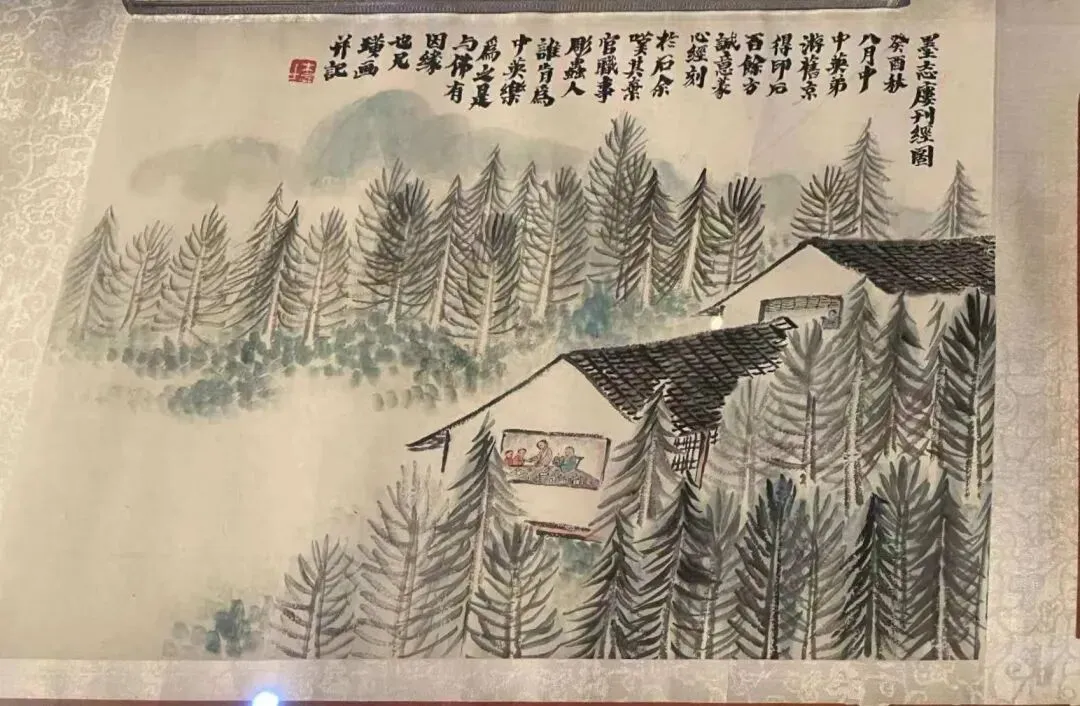 墨志廔刊經圖
癸酉秋
八月中
中英弟
游舊京
得印石
百餘方
誠意篆
心經刻
於石余
嘆其棄
官職事
彫蟲人
誰肯爲
中英樂
爲之是
与佛有
因緣
也兄
璜画
并記